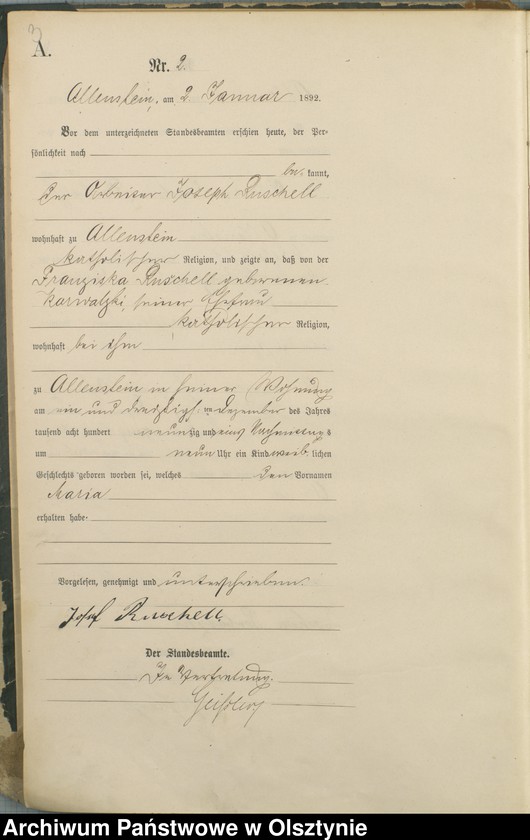 3
A.
Nr. 2.
Allenstein, am 2. Januar 1892.
Vor dem unterzeichneten Standesbeamten erschien heute, der Per-
sönlichkeit nach
be kannt,
der Arbeiter Joseph Ruschell
wohnhaft zu Allenstein
katholischer Religion, und zeigte an, daß von der
Franziska Ruschell geborenen
Karwatzki, seiner Ehefrau
katholischer Religion,
wohnhaft bei ihm
zu Allenstein in seiner Wohnung
am ein und dreißigsten Dezember des Jahres
tausend acht hundert neunzig und eins Nachmittags
um neun Uhr ein Kind weib lichen
Geschlechts geboren worden sei, welches den Vornamen
Maria
erhalten habe.
Vorgelesen, genehmigt und unterschrieben.
Josef Ruschell
Der Standesbeamte.
In Vertretung.
Archiwum Państwowe w Olsztynie